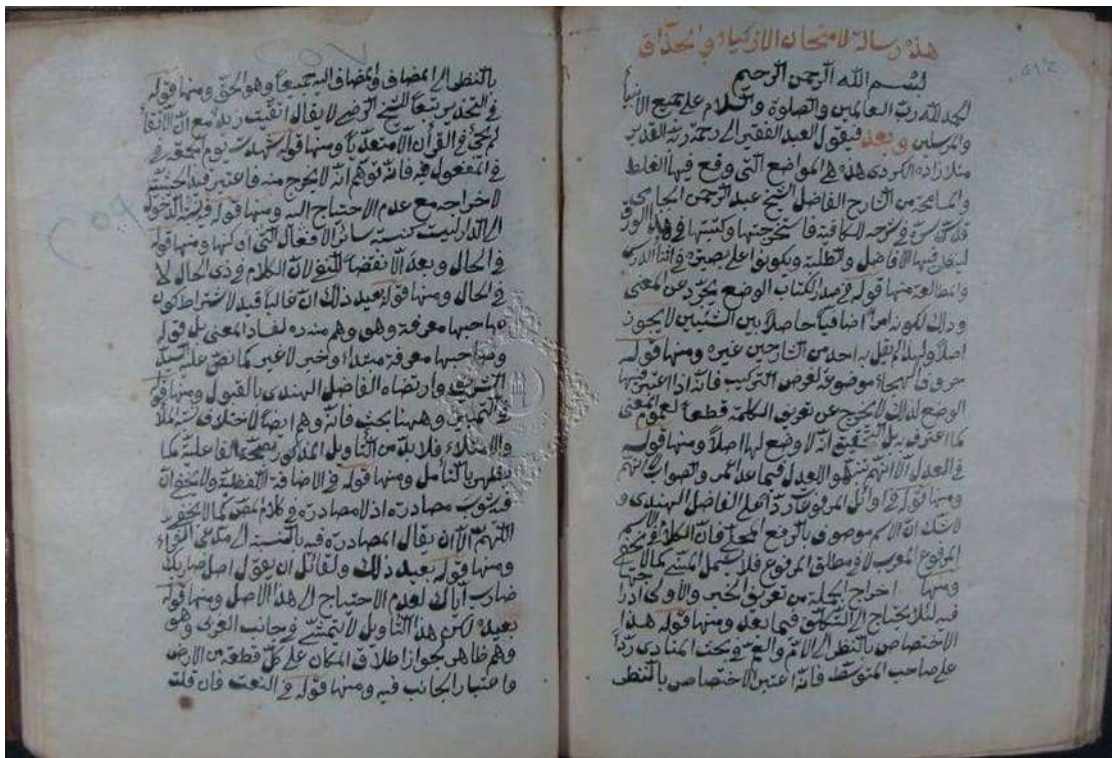 هذه رسالة لامتحان الاذكياء في الحذاق
بسم الله الرحمن الرحيم
الحمد لله رب العالمين والصلوة والسلام على جميع الانبياء
والمرسلين وبعد فيقول العبد الفقير الى رحمة ربه القدير
منلا زاده الكردى هذه هي المواضع التي وقع فيها الغلط
والمسامحة من الشارح الفاضل الشيخ عبد الرحمن الجامى
قدس في شرحه للكافية فاستخرجتها وكتبتها في هذه
لينظر فيها الافاضل والطلبة ويكونوا على بصيرة في اثناء الدرس
والمطالعة منها قوله في صدر الكتاب الوضع يجرد عن المعنى
وذاك لكونه امرا اضافيا حاصلا بين الشيئين لا يجوز
اصلا ولهذا لم يقل به احد من الشارحين غيره ومنها قوله
حروف الهجاء موضوعة لغرض التركيب فانه اذا اعتبر فيها
الوضع لذلك لا يخرج عن تعريف الكلمة قطعا المعنى
كما اعترف به بل التحقيق انه لا وضع لها اصلا ومنها قوله
في العدل الا انهم العدل فيما عدا عمر والصواب انهم
ومنها قوله في اوائل المرفوعات ردا على الفاضل الهندى و
لا شك ان الاسم موصوف بالرفع المحلى فان الكلام في الاسم
المرفوع المعرب لا في مطلق المرفوع فلا يشمل المبنى كما لا يخفى
ومنها اخراج الجملة من تعريف الخبر والاولى
فيه لئلا يحتاج الى التكلف فيما بعد ومنها قوله هذا
الاختصاص بالنظر الى الاعم في بحث المنادى ردا
على صاحب المتوسط فانه اعتبر الاختصاص بالنظر
بالنظر الى المضاف والمضاف اليه جميعا وهو الحق ومنها قوله
في التحذير تبعا للشيخ الرضى لا يقال اتقيت زيدا مع ان الاتقاء
لم يجئ في القرأن الا متعديا ومنها قوله شهدت يوم الجمعة في
في المفعول فيه فانه توهم انه لا يخرج منه فاعتبر قيد الحيثية
لاخراجه مع عدم الاحتياج اليه ومنها قوله الدخول
الى الدار ليست كنسبة سائر الافعال التي امكنها ومنها قوله
في الحال وبعد الا نقضا للنفى لان الكلام في ذى الحال لا
في الحال ومنها قوله بعيد ذلك ان غالبا قيد لاشتراط كون
صاحبها معرفة وهو وهم منه لفساد المعنى بل قوله
وصاحبها معرفة مبتداء وخبر لا غير كما نص عليه السيد
الشريف وارتضاه الفاضل الهندى بالقبول ومنها قوله
في التمييز وههنا بحث فانه وهم ايضا لاختلاف
والامتلاء فلا بد من التأويل المذكور بصحة الفاعلية كما
يظهر بالتأمل ومنها قوله في الاضافة اللفظية ولا يخفى ان
فيه شوب مصادرة اذ لا مصادرة في كلام المص كما لا يخفى
اللهم الا ان يقال المصادرة فيه بالنسبة الى مدعى الفراء
ومنها قوله بعيد ذلك ولقائل ان يقول اصل ضاربك
ضارب اياك لعدم الاحتياج الى هذا الاصل ومنها قوله
بعيده لكن هذا التأويل لا يتمشى في جانب الغربى وهو
وهم ظاهر لجواز اطلاق المكان على كل قطعة من الارض
واعتبار الجانب فيه ومنها قوله في النعت فان قلت